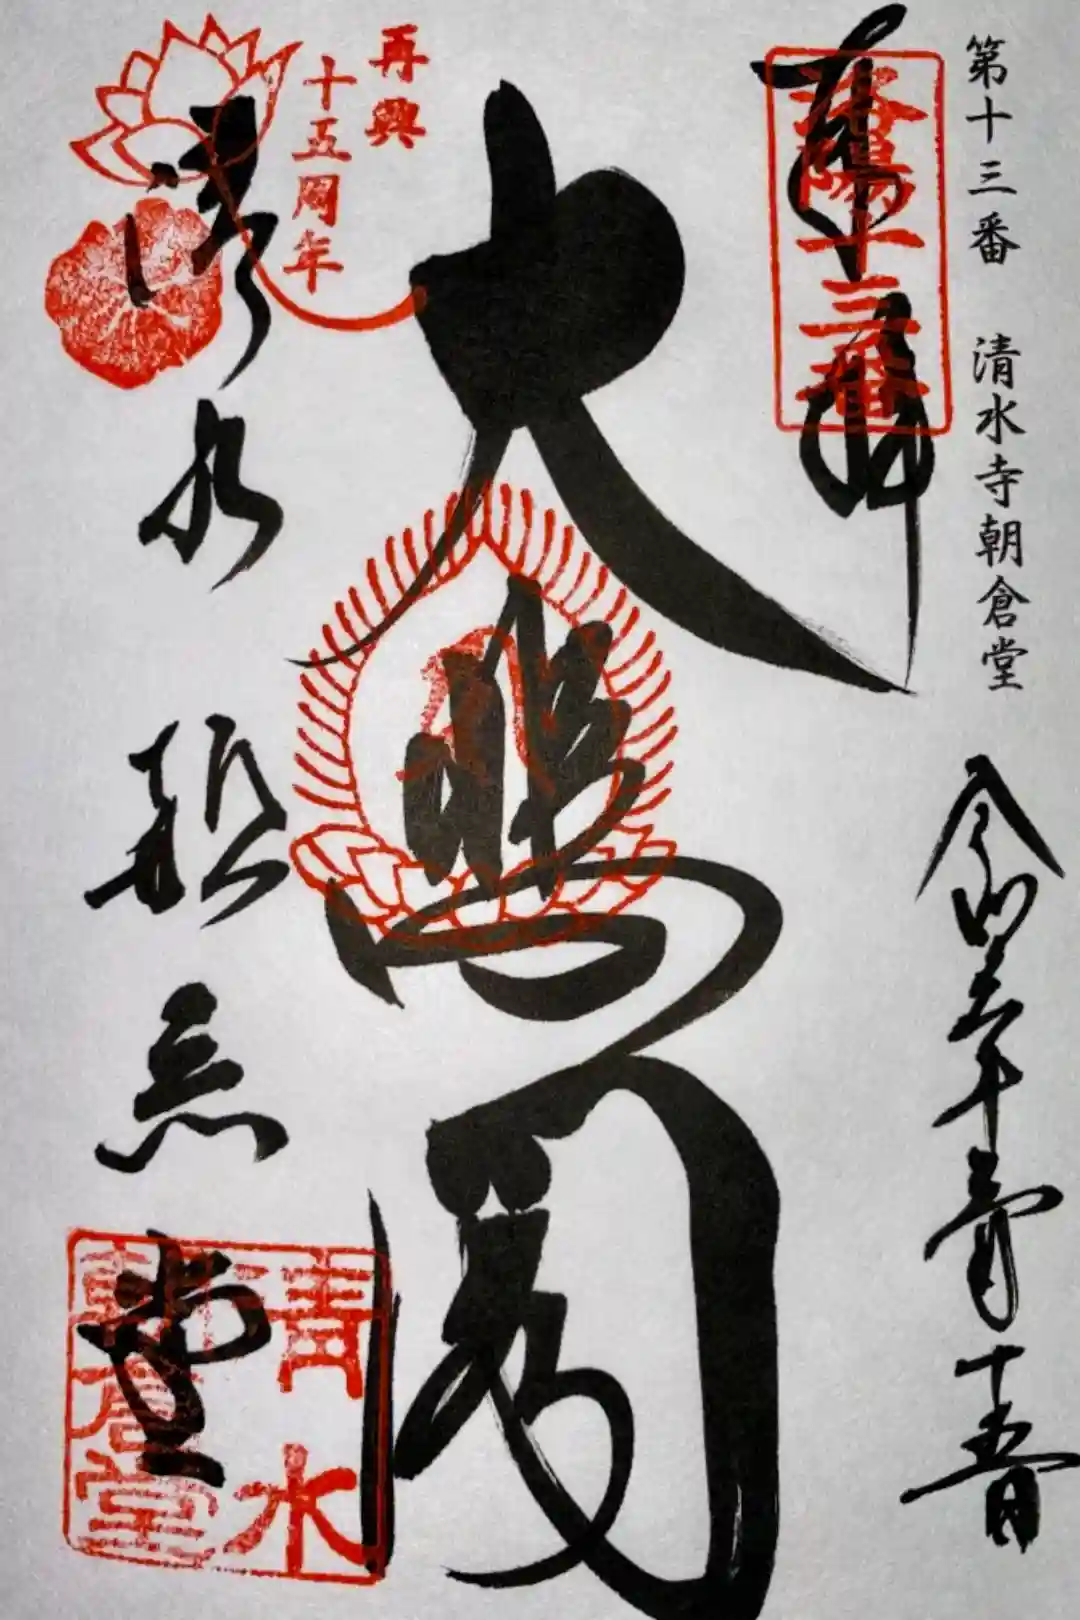 第十三番　清水寺朝倉堂
令和
奉拝
洛陽十三番
大悲閣
再興
十五周年
清水朝倉堂
清水
朝倉堂